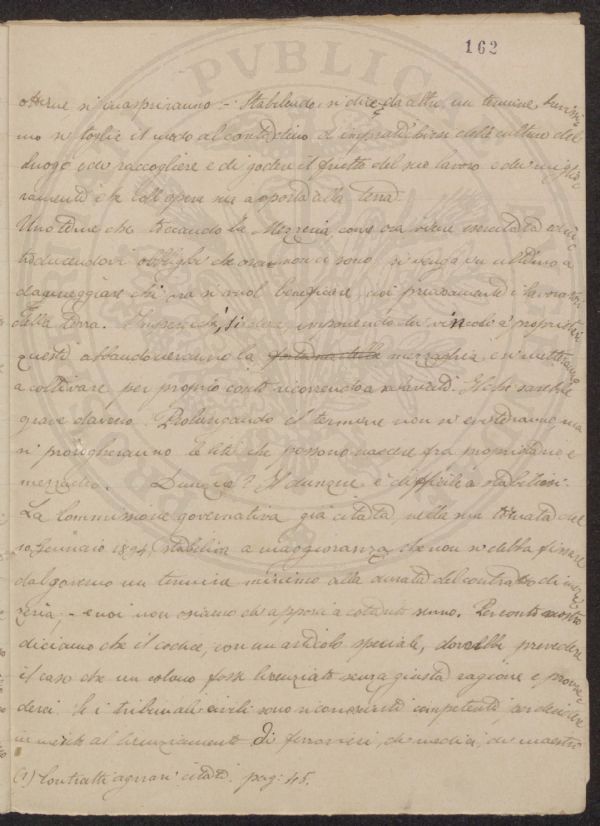 162
si inaspriranno - Stabilendo, si dice da altri, un termine
mo si toglie il mezzo al contadino di impratichirsi delle culture del
luogo e di raccogliere e di godere il frutto del suo lavoro e dei miglio
ramenti che coll'opera sua apportò alla terra.
che toccando la Mezzeria, come ora viene esercitata, e
troducendovi obblighi che ora non ci sono, si venga in ultimo a
danneggiare chi pur si vuol beneficare, cioè precisamente i lavoratori
della terra. Imperocchè, si dice, imponendo dei vincoli ai proprietari
questi abbandoneranno la mezzadria e si metteranno
a coltivare per proprio conto ricorrendo a salariati. Il che sarebbe
grave danno. Prolungando il termine non si eviteranno, ma
si prolungheranno le liti che possono nascere fra proprietario e
mezzadro. Dunque? Il dunque è difficile a stabilirsi.
La Commissione governativa già citata nella sua tornata del
10 Gennaio 1894 stabilì a maggioranza che non si debba fissare
dal governo un termine minimo alla durata del contratto di mez
zeria, - e noi non osiamo di apporci a cotanto senno. Per conto nostro
diciamo che il codice, con un articolo speciale, dovrebbe prevedere
il caso che un colono fosse licenziato senza giusta ragione e provve
derci. Se i tribunali civili sono riconosciuti competenti per decidere
in merito al licenziamento di ferrovieri, di medici, di maestri
(1) Contratti agrari citati. pag. 45.